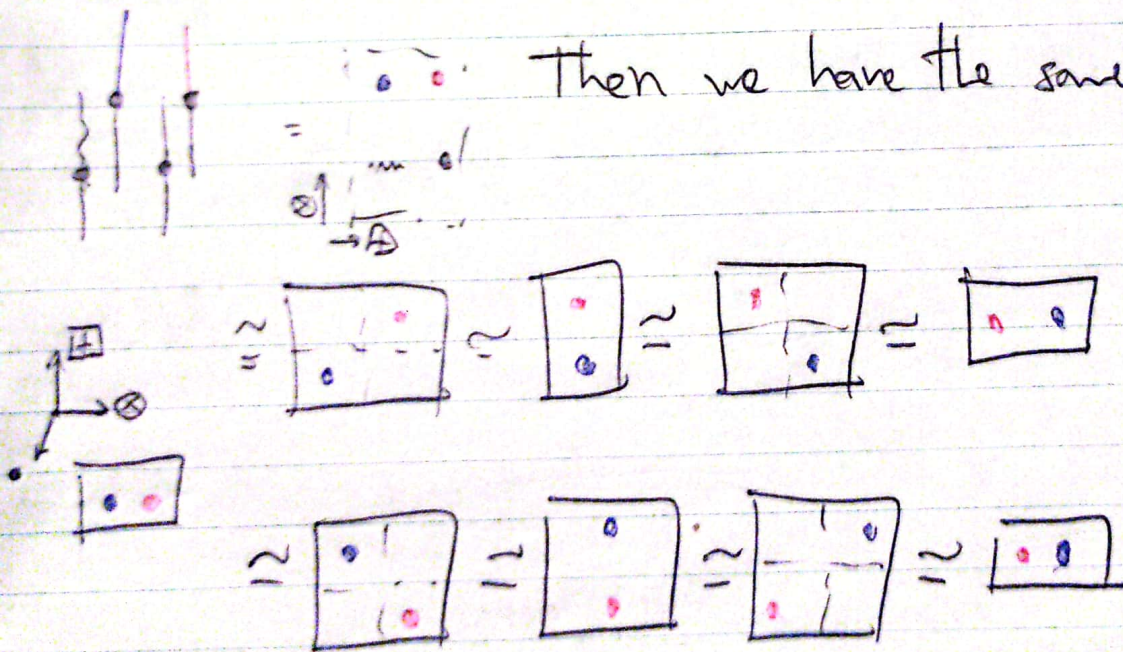 Then we have the same
=
⊗
→ ⊞
≅ ≅ ≅ ≅
⊞
⊗
≅ ≅ ≅ ≅